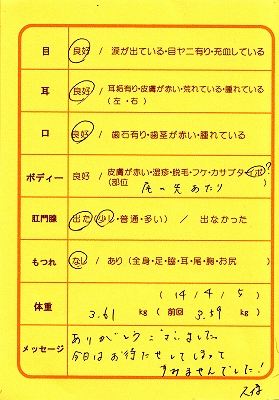 目 良好 / 涙が出ている・目ヤニ有り・充血している
耳 良好 / 耳垢有り・皮膚が赤い・荒れている・腫れている
(左・右)
口 良好 / 歯石有り・歯茎が赤い・腫れている
ボディー 良好 / 皮膚が赤い・湿疹・脱毛・フケ・カサブタ・イボ?
(部位 尾の先あたり
肛門腺 出た (少し・普通・多い) / 出なかった
もつれ なし / あり (全身・足・脇・耳・尾・胸・お尻)
体重 (14/4/5)
3.61 kg (前回 3.59 kg)
メッセージ ありがとうございました。
今日はお待たせしてしまって
すみませんでした!